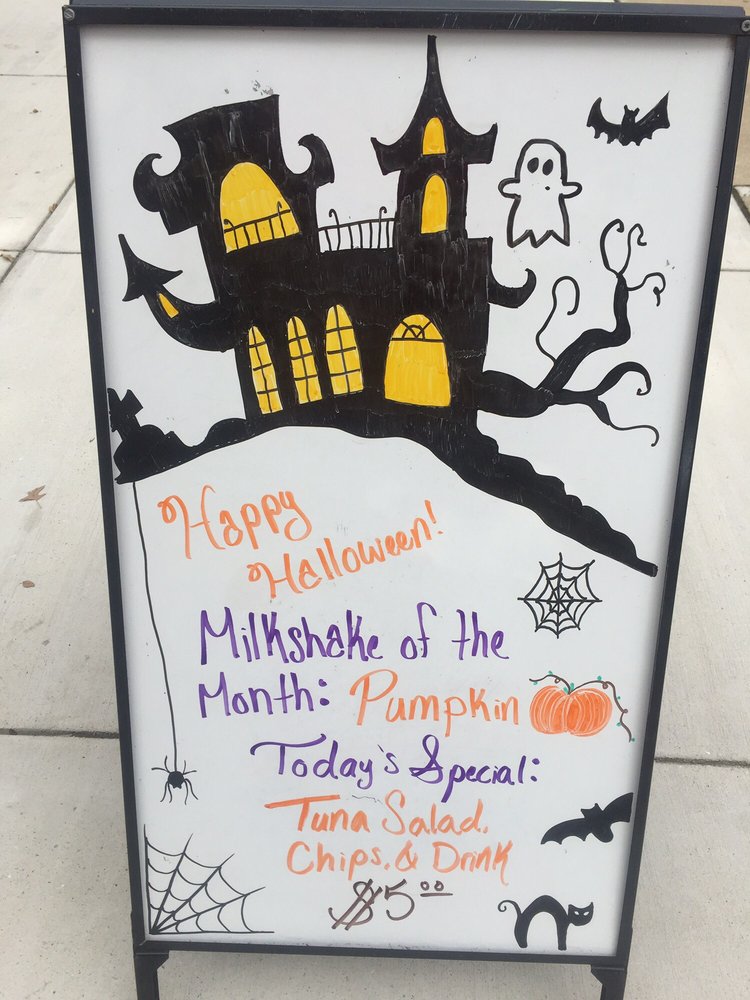 Happy
Halloween!
Milkshake of the
Month: Pumpkin
Today's Special:
Tuna Salad,
Chips, & Drink
$5.00